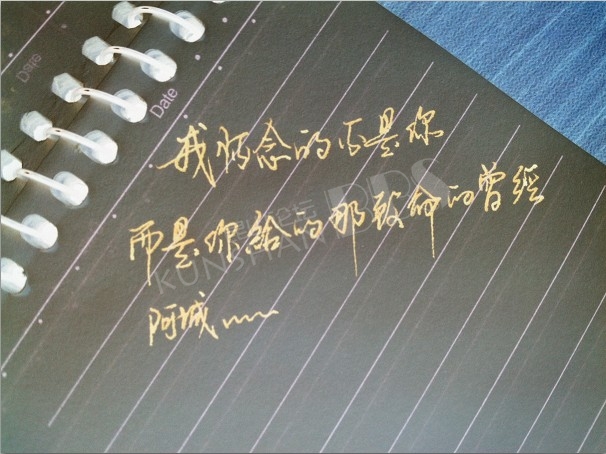 Date
Date
我怀念的不是你
而是你给的那致命的曾经
阿城﹏﹏
KUNSHAN BBS